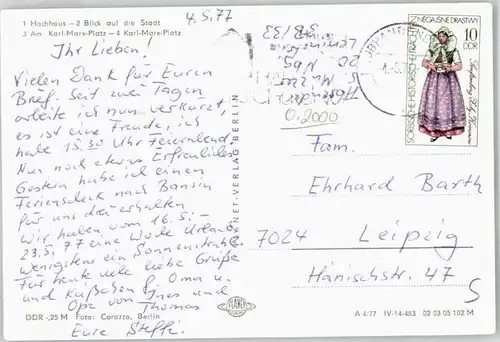 1 Hochhaus — 2 Blick auf die Stadt
3 Am Karl-Marx-Platz — 4 Karl-Marx-Platz
4.5.77
Ihr Lieben!
Vielen Dank für Euren
Brief. Seit zwei Tagen
arbeite ich nun verkürzt,
es ist eine Freude, ich
habe 15.30 Uhr Feierabend.
Nun noch etwas Erfreuliches
Gestern habe ich einen
Ferienscheck nach Bansin
für uns drei erhalten
Wir haben vom 16.5.-
23.5.77 eine Woche Urlaub,
wenigstens ein Sonnenstrahl.
Für heute viele liebe Grüße
und Küßchen f. Oma u.
Opa von Ines und
Thomas
Eure Steffi.
DDR -,25 M Foto: Corazza, Berlin
PLANET-VERLAG BERLIN
PLANET
NEGAJSNE DRASTWY
10
DDR
SORBISCHE HISTORISCHE TRACHTEN
0.2000
Fam.
Ehrhard Barth
7024 Leipzig
Hänischstr. 47
S
A 4/77 IV-14-483 02 03 05 102 M